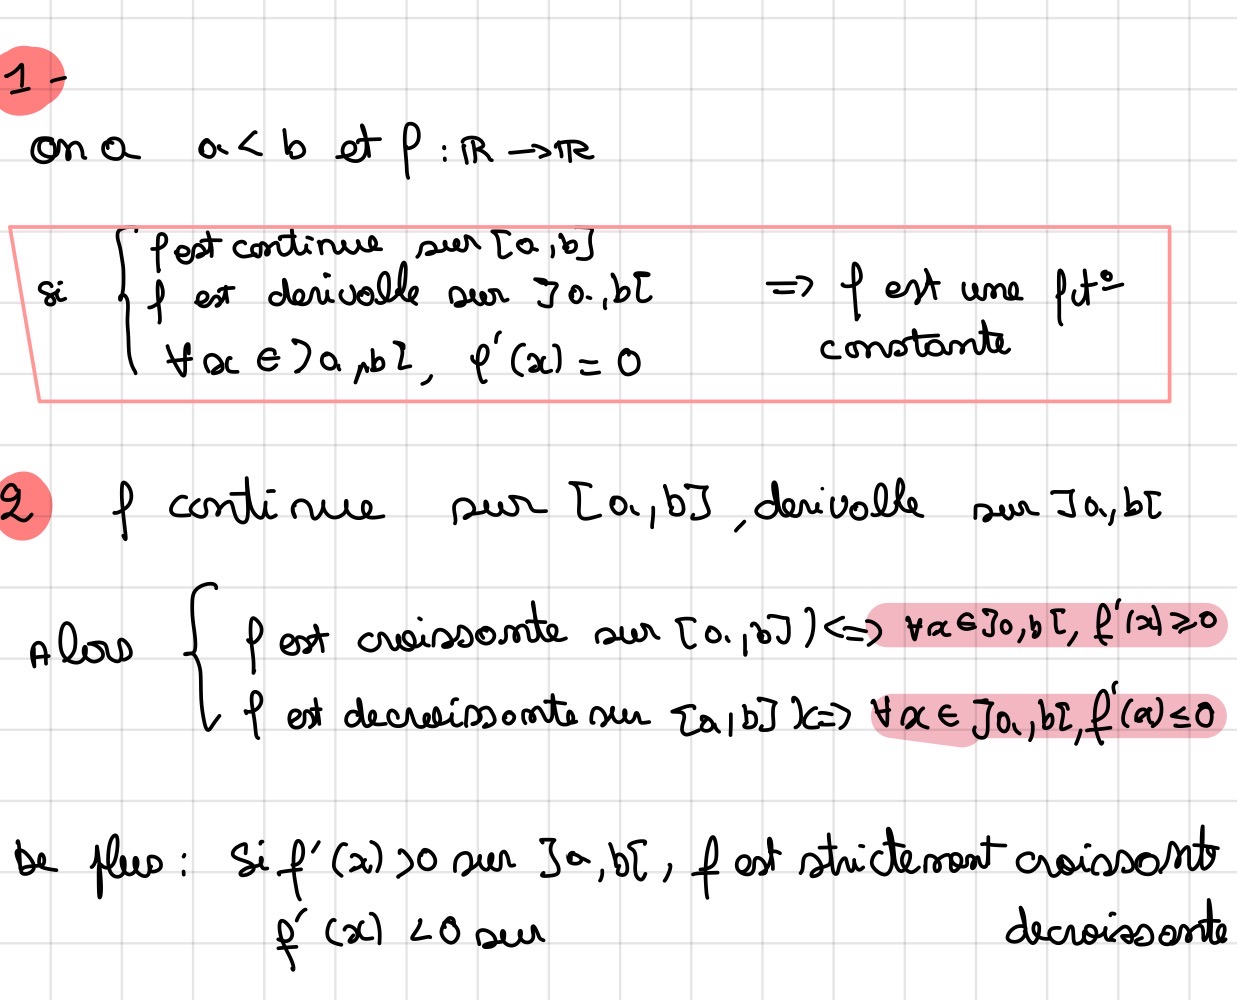 1-
on a a < b et f : ℝ → ℝ
si { f est continue sur [a,b]
f est derivable sur ]a,b[ => f est une fct° constante
∀x ∈ ]a,b[, f'(x) = 0
2 f continue sur [a,b], derivable sur ]a,b[
Alors { f est croissante sur [a,b] ) <=> ∀x ∈ ]a,b[, f'(x) ≥ 0
f est decroissante sur [a,b] ) <=> ∀x ∈ ]a,b[, f'(x) ≤ 0
De plus : Si f'(x) >0 sur ]a,b[, f est strictement croissante
f'(x) <0 sur decroissante